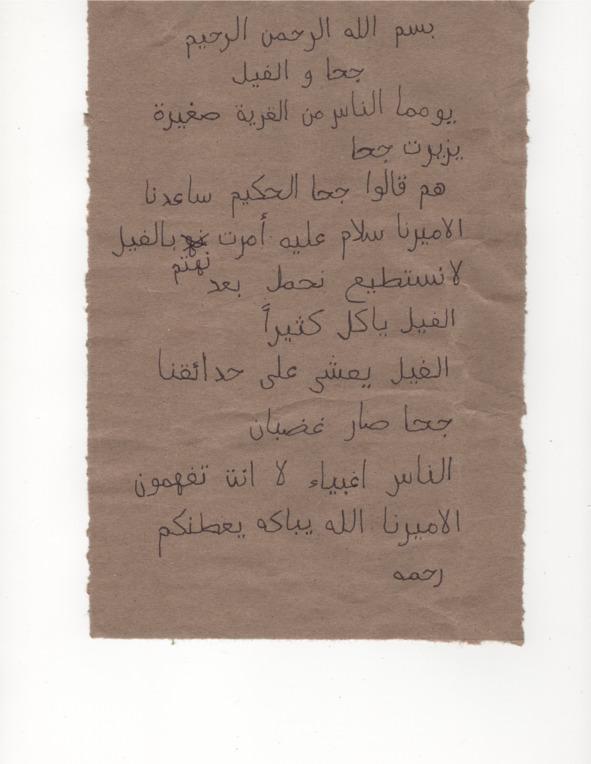 بسم الله الرحمن الرحيم
جحا و الفيل
يومما الناس من القرية صغيرة
يزيرت جحا
هم قالوا جحا الحكيم ساعدنا
الاميرنا سلام عليه أمرت نهتم بالفيل
لانستطيع نحمل بعد
الفيل ياكل كثيراً
الفيل يمشي على حدائقنا
جحا صار غضبان
الناس اغبياء لا انت تفهمون
الاميرنا الله يباكه يعطنكم
رحمه